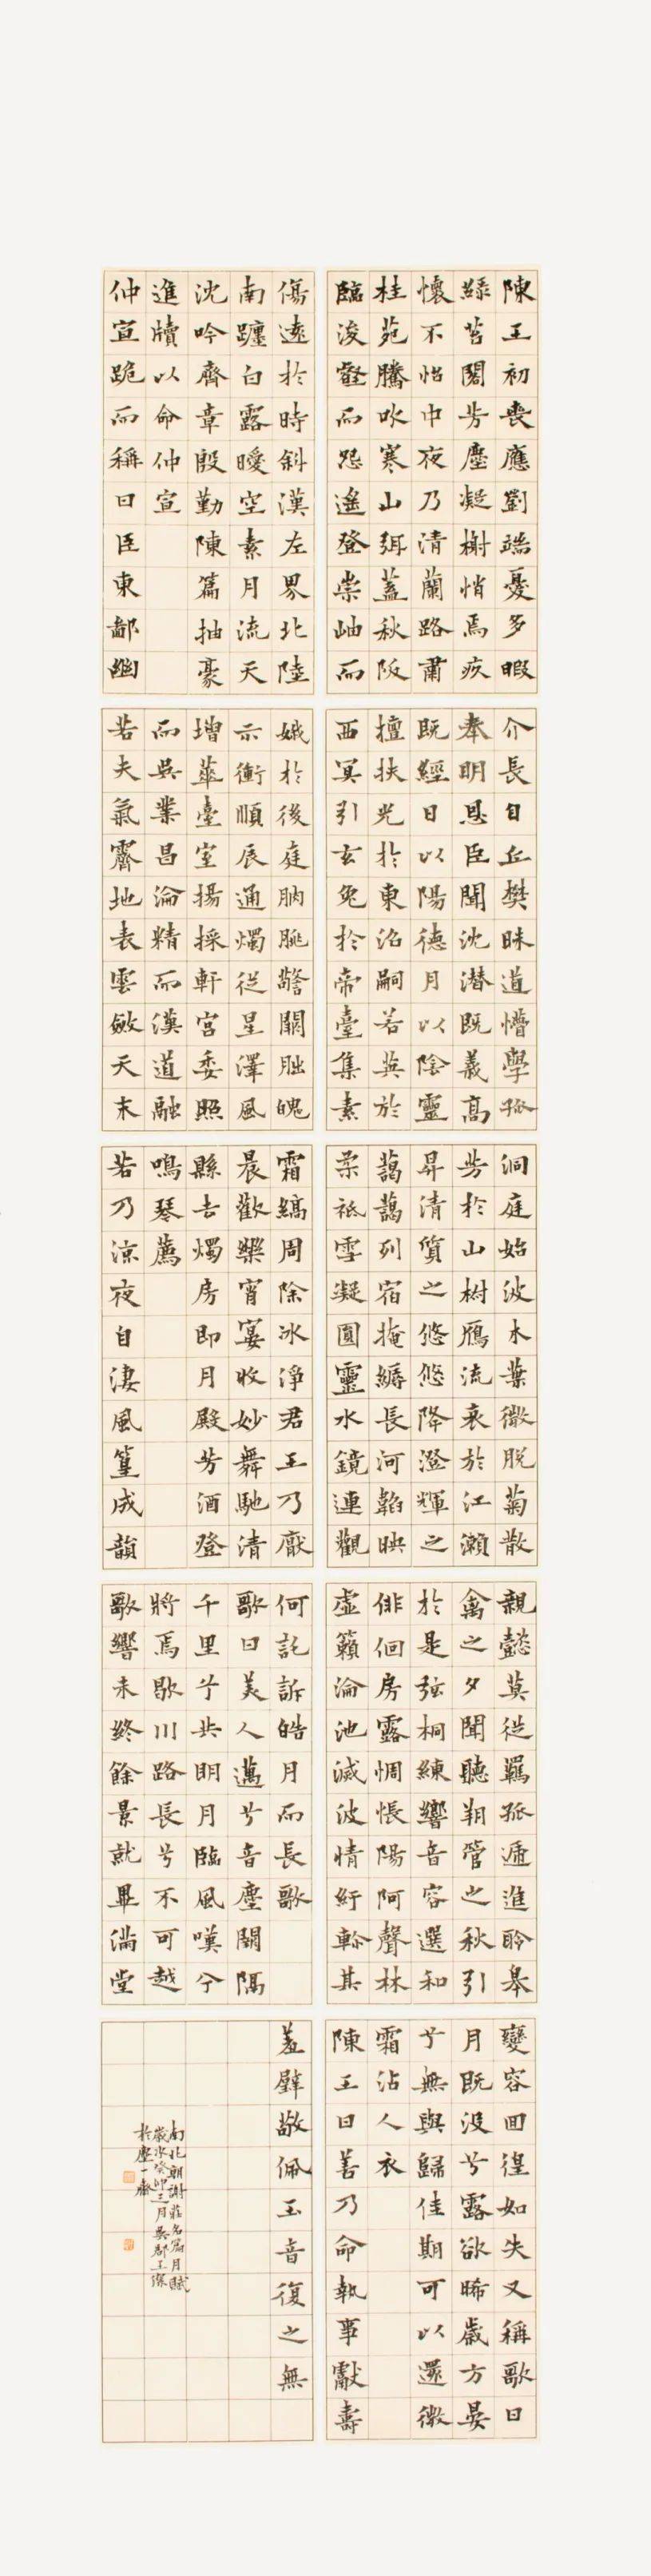 陳王初喪應劉端憂多暇
綠苔閣芳塵凝榭悄焉疚
懷不怡中夜乃清蘭路肅
桂苑騰吹寒山弭蓋秋阪
臨浚壑而怨遙登崇岫而
傷遠於時斜漢左界北陸
南躔白露曖空素月流天
沈吟齊章殷勤陳篇抽豪
進牘以命仲宣
仲宣跪而稱曰臣東鄙幽
介長自丘樊昧道懵學孤
奉明恩臣聞沈潛既義高
既經日以陽德月以陰靈
擅扶光於東沼嗣若英於
西冥引玄兔於帝臺集素
娥於後庭朒朓警闕朏魄
示衝順辰通燭從星澤風
增華臺室揚採軒宮委照
而吳業昌淪精而漢道融
若夫氣霽地表雲斂天末
洞庭始波木葉微脫菊散
芳於山樹雁流哀於江瀨
昇清質之悠悠降澄輝之
藹藹列宿掩縟長河韜映
柔祇雪凝圓靈水鏡連觀
霜縞周除冰淨君王乃厭
晨歡樂宵宴收妙舞馳清
縣去燭房即月殿芳酒登
鳴琴薦
若乃涼夜自淒風篁成韻
親懿莫從羈孤遞進聆皋
禽之夕聞聽朔管之秋引
於是弦桐練響音容選和
徘徊房露惆悵陽阿聲林
虛籟淪池滅波情紆軫其
何託訴皓月而長歌
歌曰美人邁兮音塵闕隔
千里兮共明月臨風嘆兮
將焉歇川路長兮不可越
歌響未終餘景就畢滿堂
變容回徨如失又稱歌曰
月既沒兮露欲晞歲方晏
兮無與歸佳期可以還微
霜沾人衣
陳王曰善乃命執事獻壽
羞璧敬佩玉音復之無
南北朝謝莊名篇月賦
歲次癸卯三月吳郡王傑
於塵一齋